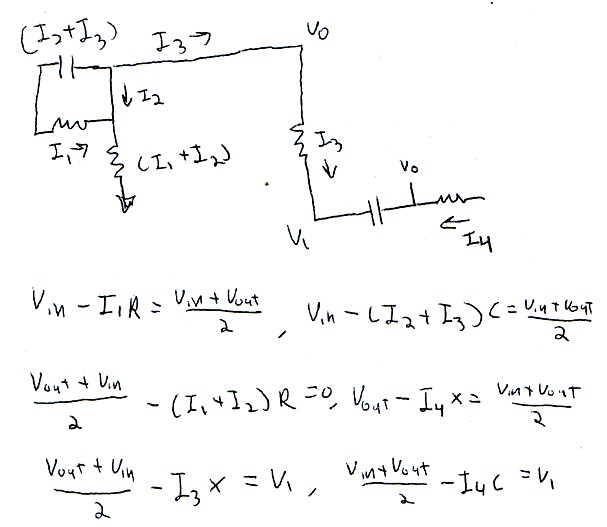 (I₂+I₃)
I₃→
V₀
↓I₂
I₁→
(I₁+I₂)
I₃
↓
V₀
V₁
←
I₄
Vin - I₁R = (Vin+Vout)/2 , Vin - (I₂+I₃)C = (Vin+Vout)/2
(Vout+Vin)/2 - (I₁+I₂)R = 0, Vout - I₄x = (Vin+Vout)/2
(Vout+Vin)/2 - I₃x = V₁ , (Vin+Vout)/2 - I₄C = V₁